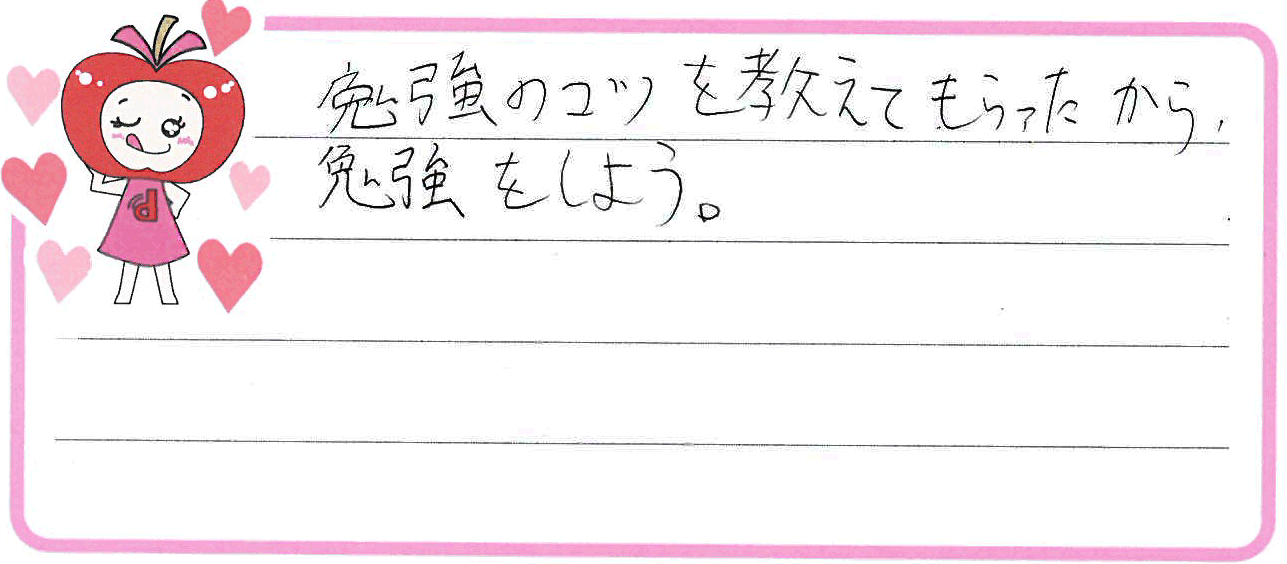 勉強のコツを教えてもらったから、
勉強をしよう。